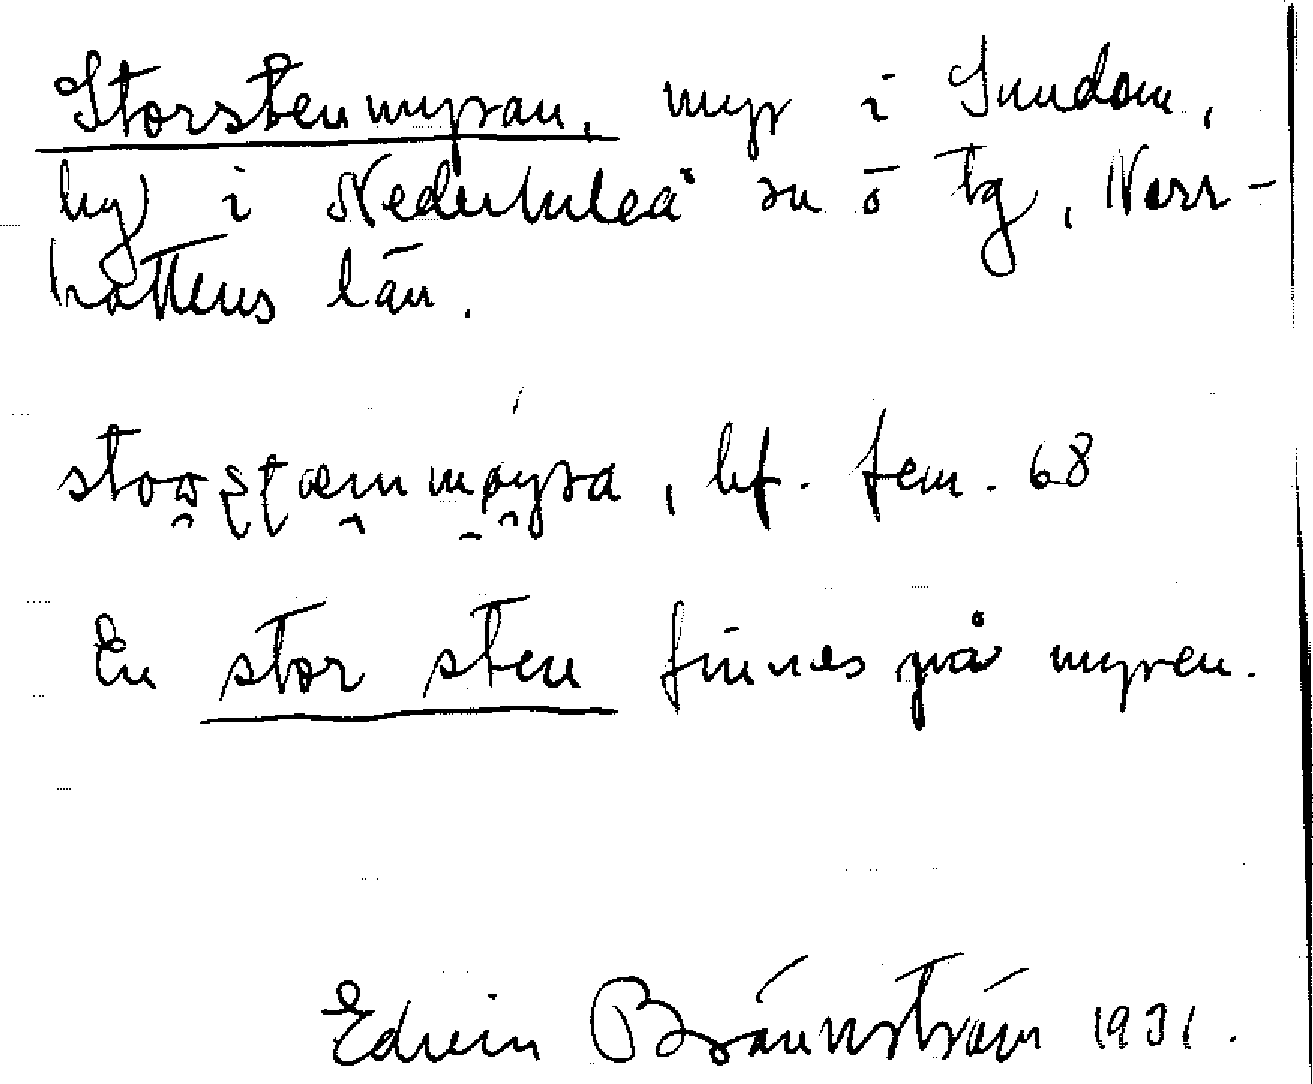 Storstenmyran, myr i Sundom,
by i Nederluleå sn ö tg, Norr-
bottens län.
bf. fem. 68
En stor sten finnes på myren.
Edvin Brännström 1931.